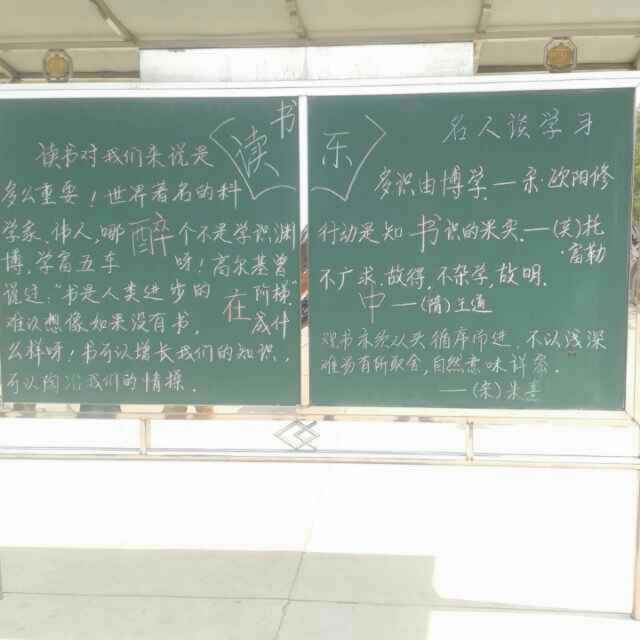 读书
乐
读书对我们来说是
多么重要！世界著名的科
学家、伟人，哪个不是学识渊
博，学富五车呀！高尔基曾
说过："书是人类进步的阶梯"
难以想像如果没有书，成什
么样呀！书可以增长我们的知识，
可以陶冶我们的情操。
醉
在
书
中
名人谈学习
多识由博学。—宋·欧阳修
行动是知识的果实。—(英)托·富勒
不广求，故得，不杂学，故明。
—(隋)王通
观书亦须从头循序而进，不以浅深
难易有所取舍，自然意味详密。
—(宋)朱熹